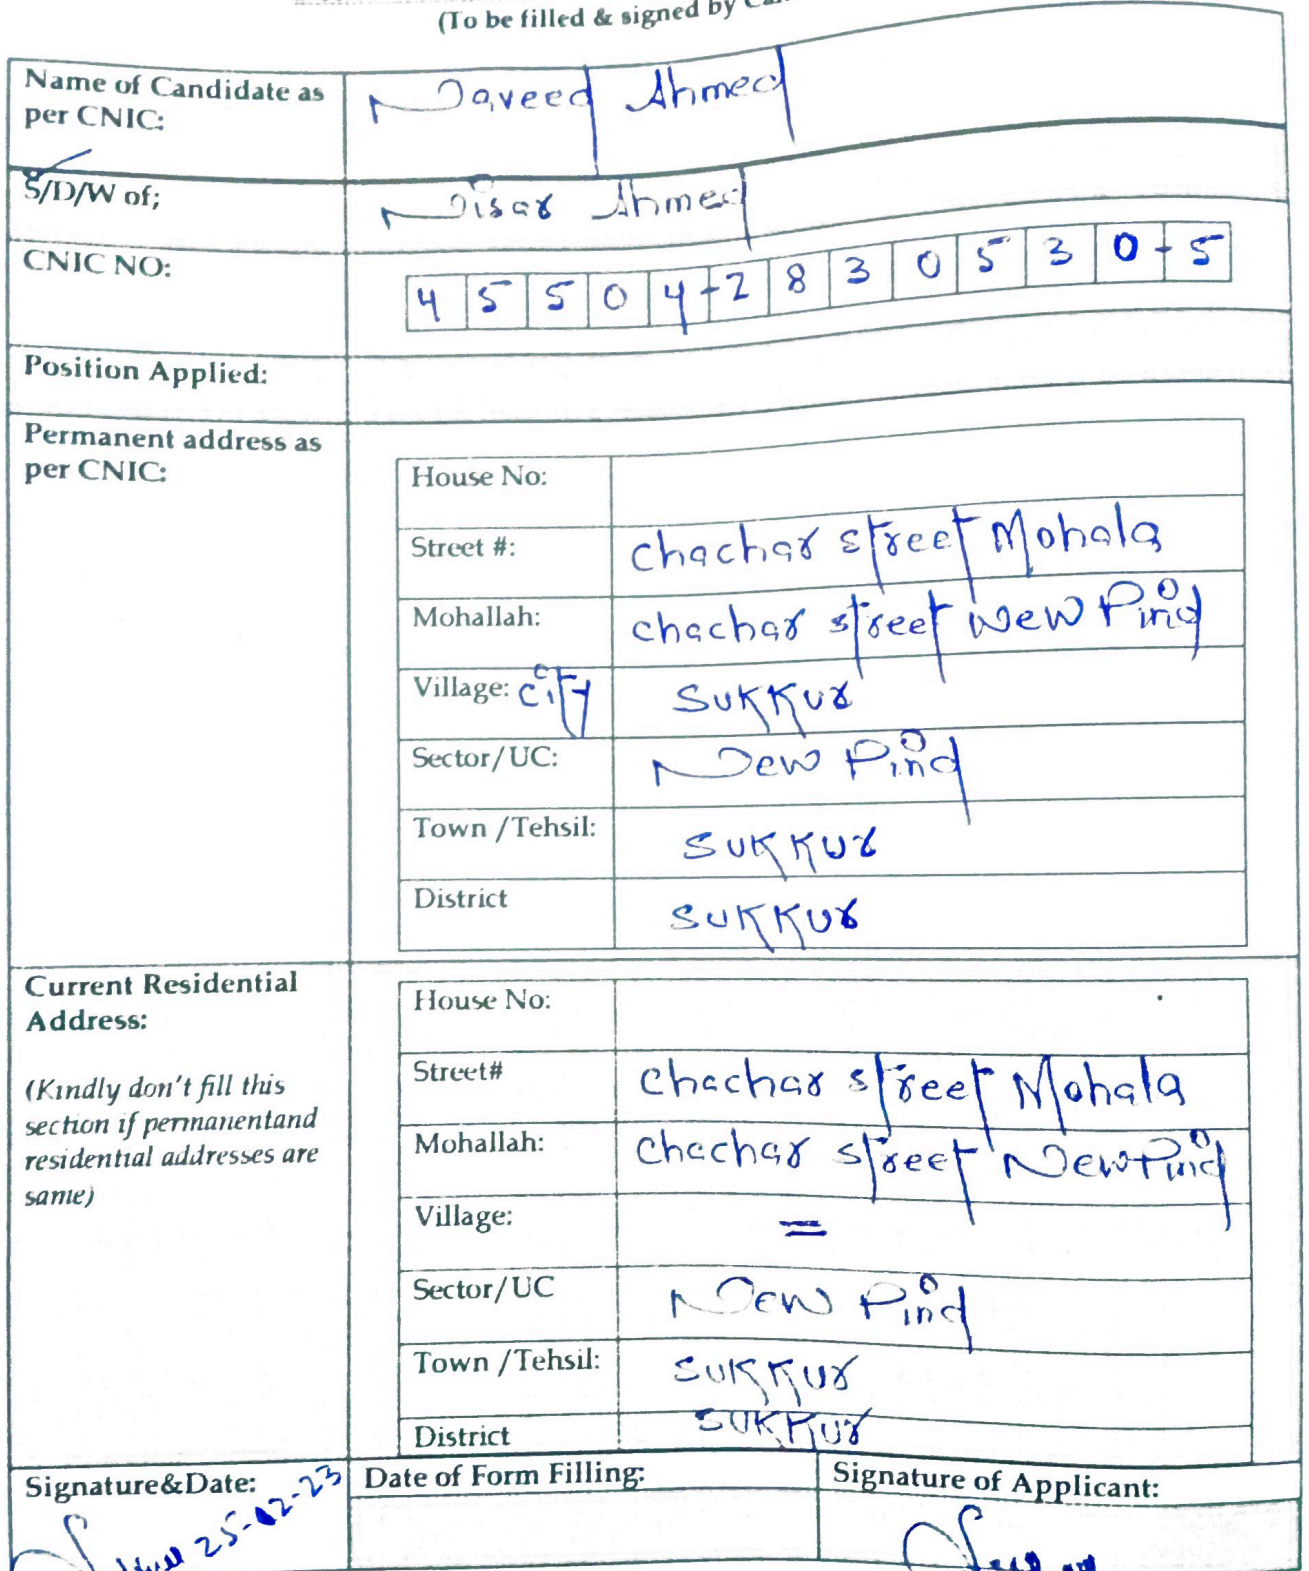 (To be filled & signed by
Name of Candidate as per CNIC: Naveed Ahmed
S/D/W of; Nisar Ahmed
CNIC NO: 45504-2830530-5
Position Applied:
Permanent address as per CNIC:
House No:
Street #: Chachar street Mohala
Mohallah: chachar street New Pind
Village: City SUKKUR
Sector/UC: New Pind
Town /Tehsil: SUKKUR
District SUKKUR
Current Residential Address:
(Kindly don't fill this section if permanentand residential addresses are same)
House No:
Street# Chachar street Mohala
Mohallah: Chachar street New Pind
Village: =
Sector/UC New Pind
Town /Tehsil: SUKKUR
District SUKKUR
Signature&Date: 25-02-23
Date of Form Filling:
Signature of Applicant: